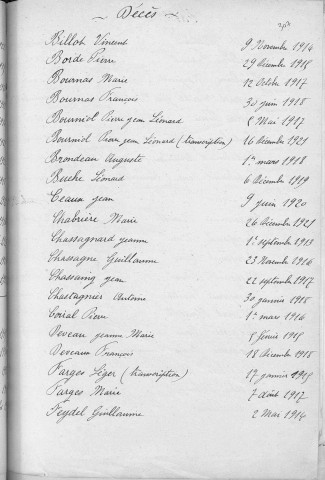 Décès
Billot Vincent 9 Novembre 1914
Borde Pierre 29 décembre 1915
Bournas Marie 12 Octobre 1917
Bournas François 30 juin 1918
Bourniol Pierre jean Léonard 5 Mai 1917
Bourniol Pierre jean Léonard (transcription) 16 décembre 1921
Brondeau Auguste 1er mars 1918
Buche Léonard 6 décembre 1919
Ceaux jean 9 juin 1920
Chabrière Marie 26 décembre 1921
Chassagnard jeanne 1er septembre 1913
Chassagne Guillaume 23 Novembre 1916
Chassaing jean 22 septembre 1917
Chastagnier Antoine 30 janvier 1915
Coiral Pierre 1er mars 1916
Deveau jeanne Marie 5 février 1915
Deveaux François 18 décembre 1915
Farges Léger (transcription) 17 janvier 1915
Farges Marie 7 août 1917
Feydel Guillaume 2 Mai 1914